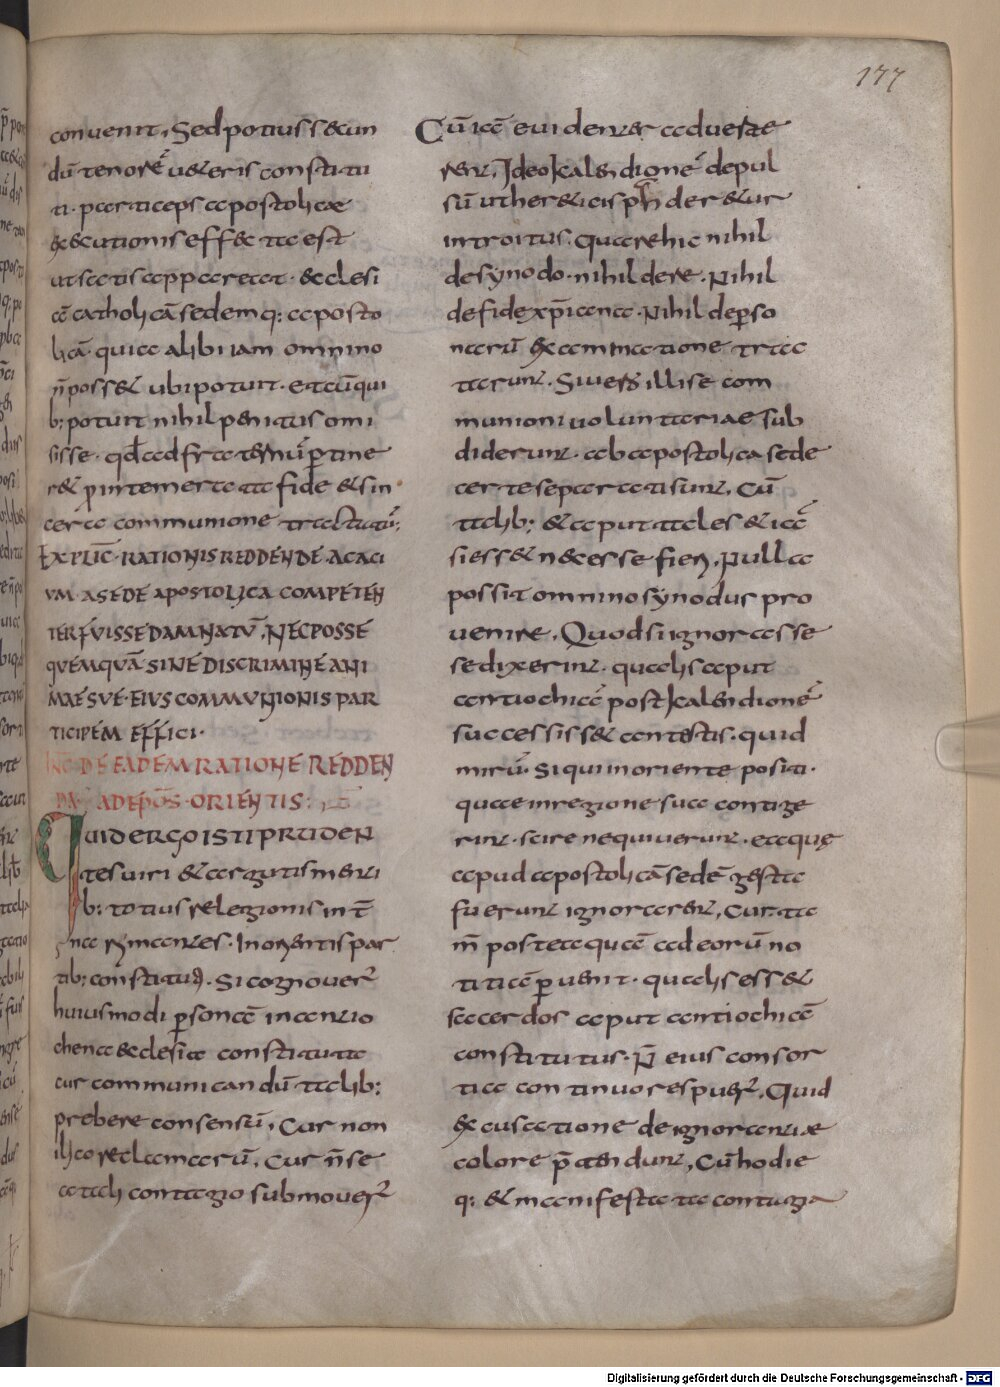 177
conuenit, Sed potius secun
dū tenorē ueteris constitu
ti· particeps apostolicae
executionis effecta est
ut satis appareret· ecclesi
ā catholicā sedemq; aposto
licā· quia alibi iam omnino
n̄ posset ubi potuit· et cū qui
b; potuit nihil penitus omi
sisse· qđ ad fraternū ptine
ret ꝓ intemerata fide & sin
cera communione tractatū;
EXPLIC̄· RATIONIS REDDENDE ACACI
VM· A SEDE APOSTOLICA COMPETEN
TER FVISSE DAMNATŪ, NEC POSSE
QVEMQVĀ SINE DISCRIMINE ANI
MAE SVE· EIVS COMMVNIONIS PAR
TICIPEM EFFICI·
INC̄ DE EADEM RATIONE REDDEN
DA AD EP̄OS· ORIENTIS:
QUID ERGO ISTI PRUDEN
tes uiri & argutis menti
b: totius relegionis int̄
gna rimantes· In orientis par
tib; constituti· Si cognouer̄
huiusmodi ꝑsonā in antio
chena ecclesia constituta
cur communicandū talib:
prebere consensū, Cur non
ilico reclamarū, Cur n̄ se
a tali contagio submouer̄
Cū iā euidenter aduerte
rent, Ideo kalendionē depul
sū ut hereticis p̄hderetur
introitus, Quare hic nihil
de synodo· nihil de re· Nihil
de fide xp̄iana· Nihil de ꝑso
narū examinatione trac
tarunt, Si uero illi se com
munioni uoluntariae sub
diderunt· ab apostolica sede
certe separati sunt, Cū
talib; & aput tales & iā
si esset necesse fieri, Nulla
possit omnino synodus pro
uenire, Quod si ignorasse
se dixerint· qualis aput
antiochiā post kalendionē
successisset antestis· quid
mirū· si qui in oriente positi·
quae in regione sua contige
rint· scire nequiuerunt· ea quę
apud apostolicā sedē gesta
fuerunt ignorarent, Cur ta
m̄ postea quā ad eorū no
titiā ꝑuenit· qualis esset
sacerdos aput antiochiā
constitutus· n̄ eius consor
tia continuo respuer̄, Quid
excusatione de ignorantiae
colore p̄tendunt, Cū hodie
q; & manifesta ta contagia
Digitalisierung gefördert durch die Deutsche Forschungsgemeinschaft - DFG